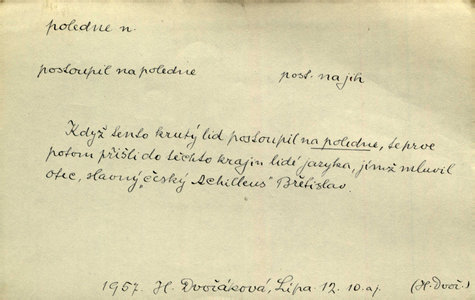 poledne n.
postoupil na poledne post. na jih
Když tento krutý lid postoupil na poledne, teprve
potom přišli do těchto krajin lidé jazyka, jímž mluvil
otec, slavný „český Achilleus" Břetislav.
1957. H. Dvořáková, Lípa 12. 10. aj. (H. Dvoř.